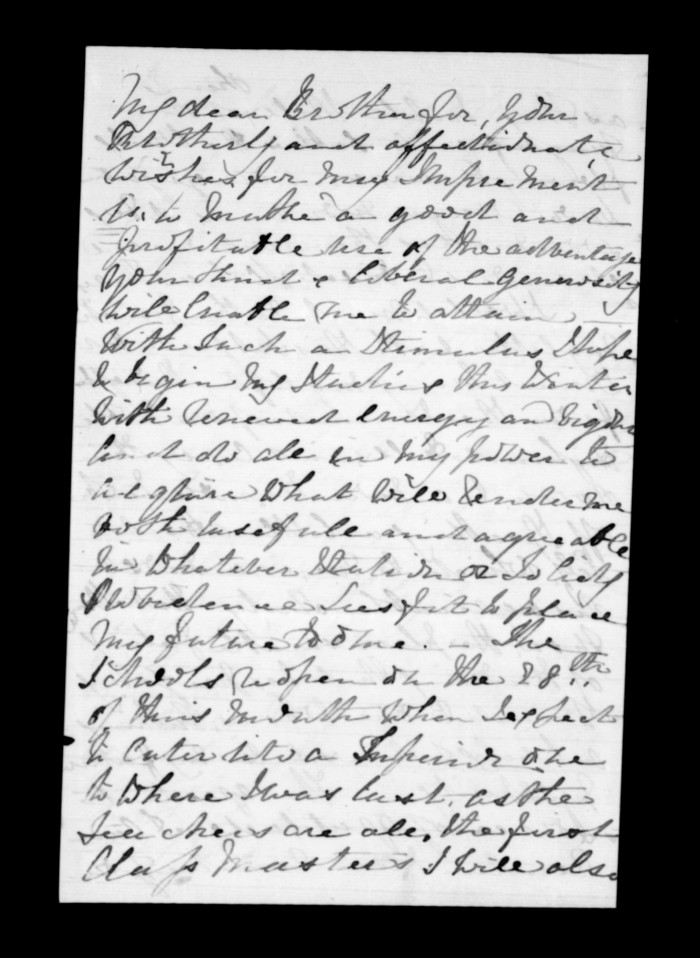 My dear Brother for, your
Brotherly and affectionate
wishes for my Improvement
is to make a good and
profitable use of the advantage
your kind & liberal generosity
will Enable me to attain —
With Such a Stimulus I hope
to begin my Studies this Winter
with renewed energy and vigour
and do all in my power to
acquire what will render me
both usefull and agreeable
in whatever Station or Society
Providence Sees fit to place
my future to me. — The
Schools reopen on the 28th
of this month when I expect
to Enter into a Superior one
to where I was last. as the
Teachers are all, the first
Class Masters I will also